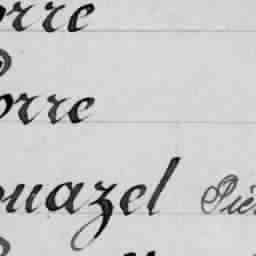 orre
orre
ouazel Pie